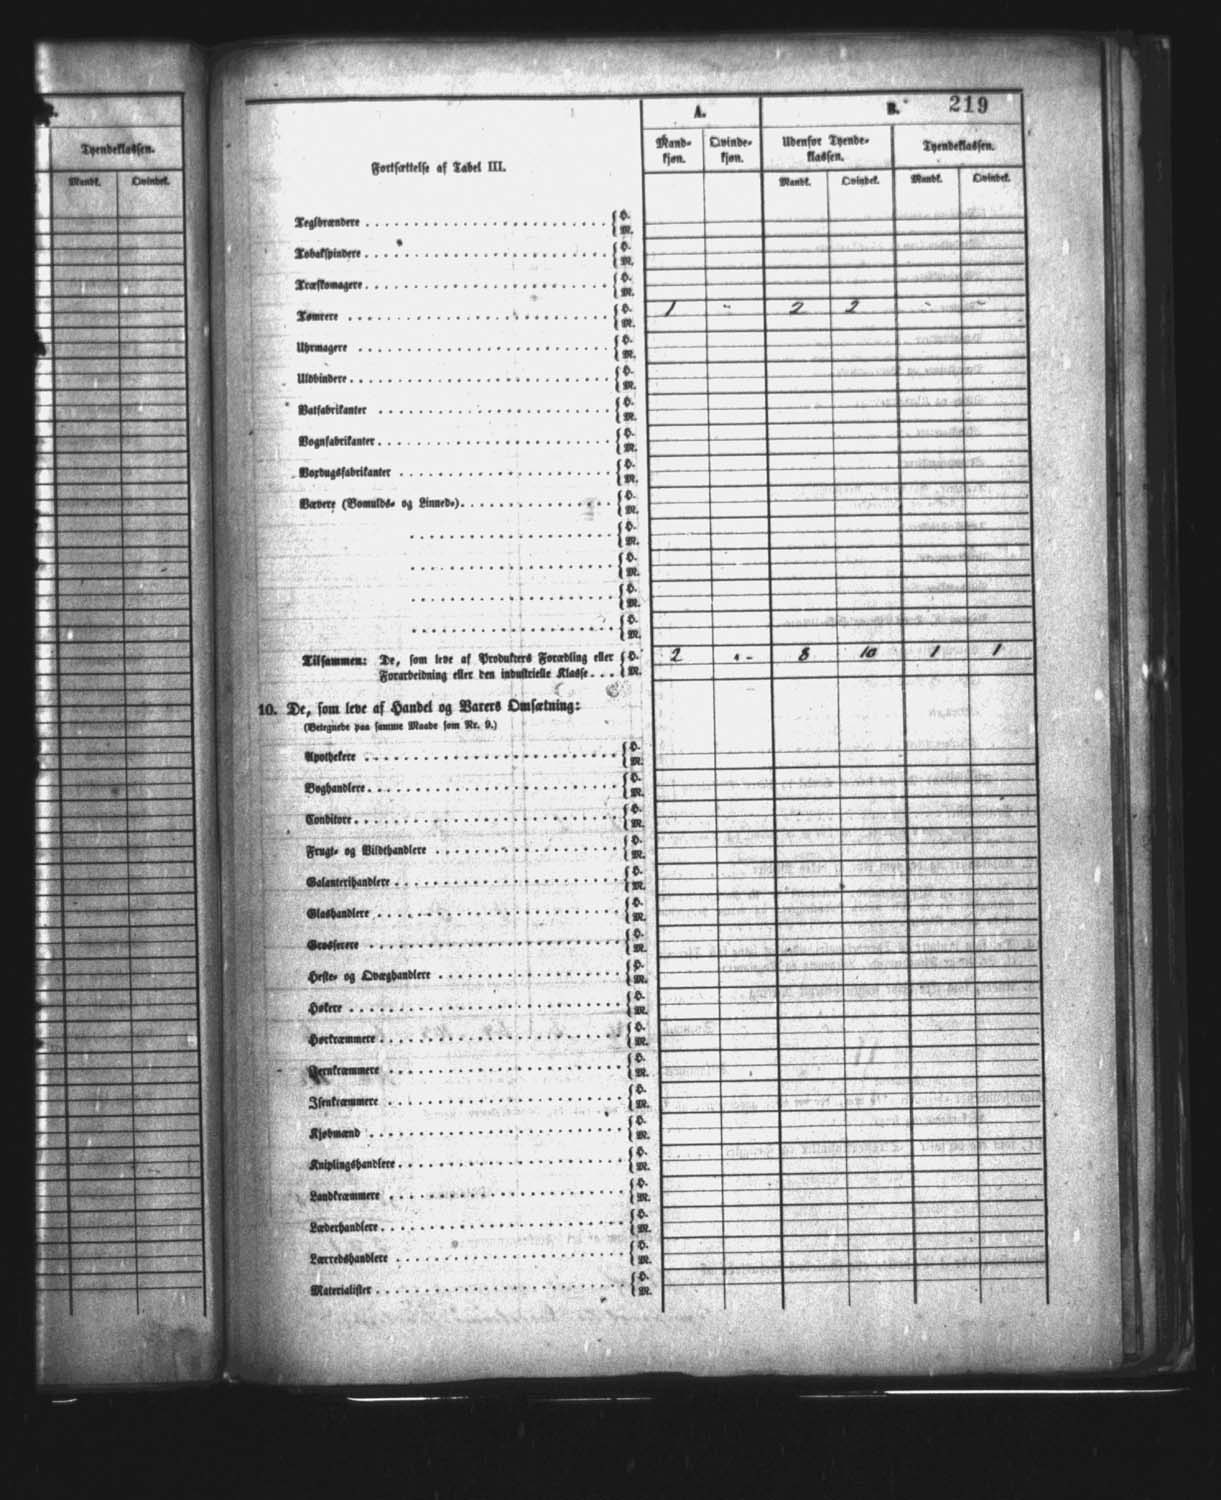 Tyendeklassen.
Mandk. Qvindek.
219
A. B.
Fortsættelse af Tabel III.
Mandkjøn. Qvindekjøn. Udenfor Tyendeklassen. Tyendeklassen.
Mandk. Qvindek. Mandk. Qvindek.
Teglbrændere { H.
{ M.
Tobakspindere { H.
{ M.
Træskomagere { H.
{ M.
Tømrere { H. 1 - 2 2 - -
{ M.
Uhrmagere { H.
{ M.
Uldbindere { H.
{ M.
Vatfabrikanter { H.
{ M.
Vognfabrikanter { H.
{ M.
Voxdugsfabrikanter { H.
{ M.
Vævere (Bomulds- og Linned-) { H.
{ M.
{ H.
{ M.
{ H.
{ M.
{ H.
{ M.
{ H.
{ M.
Tilsammen: De, som leve af Produkters Forædling eller { H. 2 - 8 10 1 1
Forarbeidning eller den industrielle Klasse { M.
10. De, som leve af Handel og Varers Omsætning:
(Betegnede paa samme Maade som Nr. 9.)
Apothekere { H.
{ M.
Boghandlere { H.
{ M.
Conditore { H.
{ M.
Frugt- og Vildthandlere { H.
{ M.
Galanterihandlere { H.
{ M.
Glashandlere { H.
{ M.
Grosserere { H.
{ M.
Heste- og Qvæghandlere { H.
{ M.
Høkere { H.
{ M.
Hørkræmmere { H.
{ M.
Jernkræmmere { H.
{ M.
Isenkræmmere { H.
{ M.
Kjøbmænd { H.
{ M.
Kniplingshandlere { H.
{ M.
Landkræmmere { H.
{ M.
Læderhandlere { H.
{ M.
Lærredshandlere { H.
{ M.
Materialister { H.
{ M.